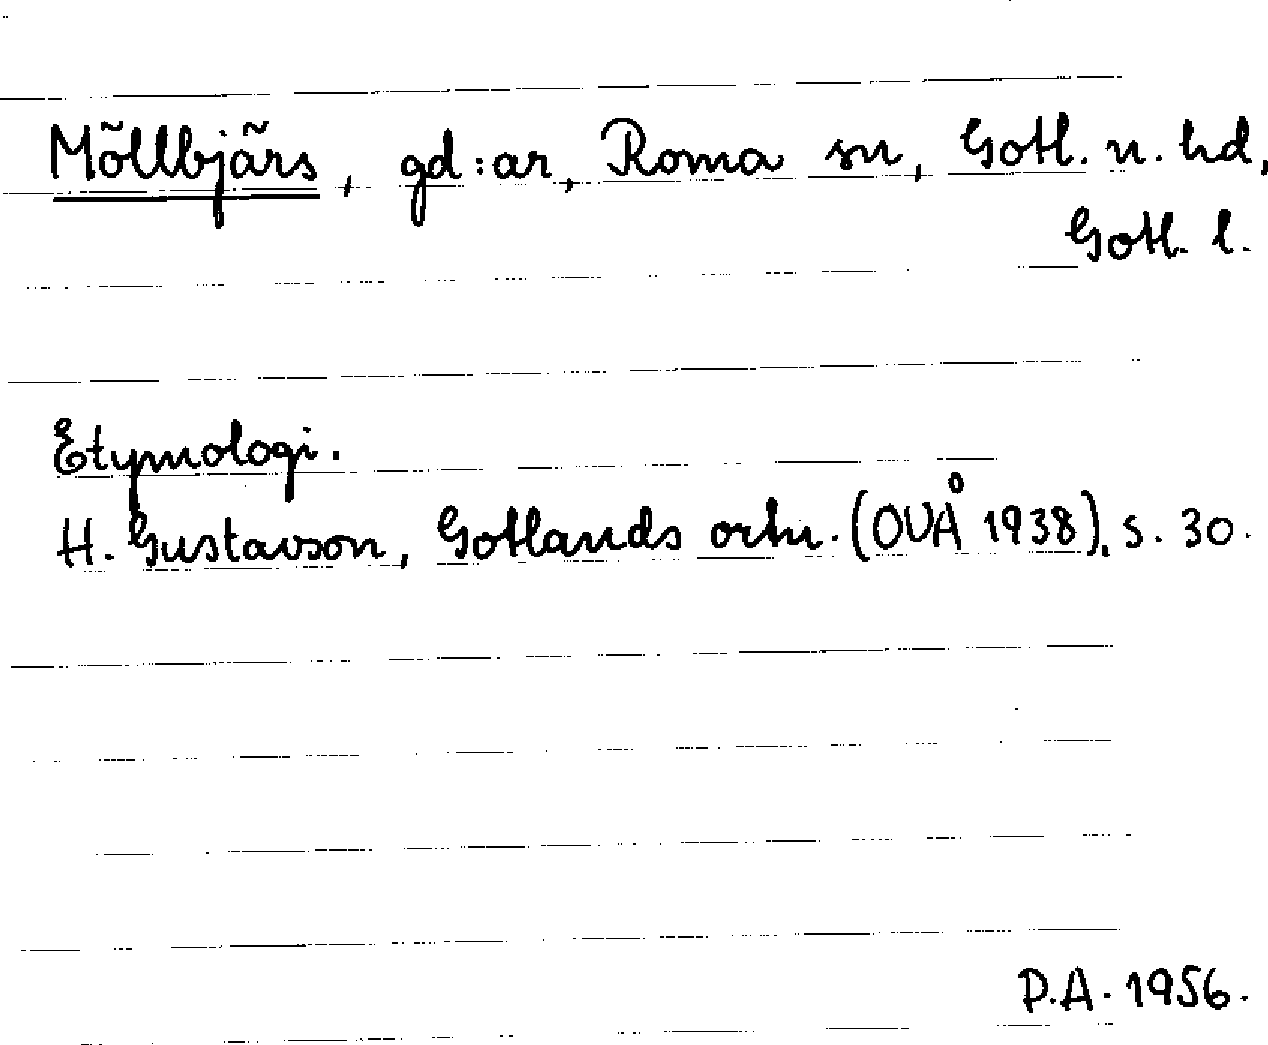 Möllbjärs, gd:ar, Roma sn, Gotl. n. hd,
Gotl. l.
Etymologi.
H. Gustavson, Gotlands ortn. (OUÅ 1938), s. 30.
P.A. 1956.